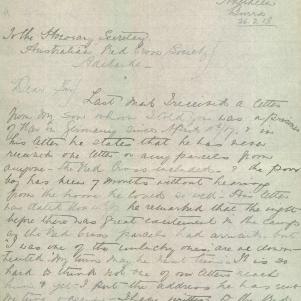 Burra
26.2.18
To the Honorary Secretary
Australian Red Cross Society
Adelaide
Dear Sir
Last mail I received a letter
from my son whom I told you was a prisoner
of War in Germany since April 11th 17, & in
this letter he states that he has never
received one letter or any parcels from
anyone - the Red Cross included & the poor
boy has been 7 months without hearing
from the home he loved so well - His letter
was dated he remarked that the night
before there was great excitement in the camp
as the Red Cross parcels had arrived but
I was one of the unlucky ones
It is so
hard to think not one of our letters reach
him & yet I put the address he has sent